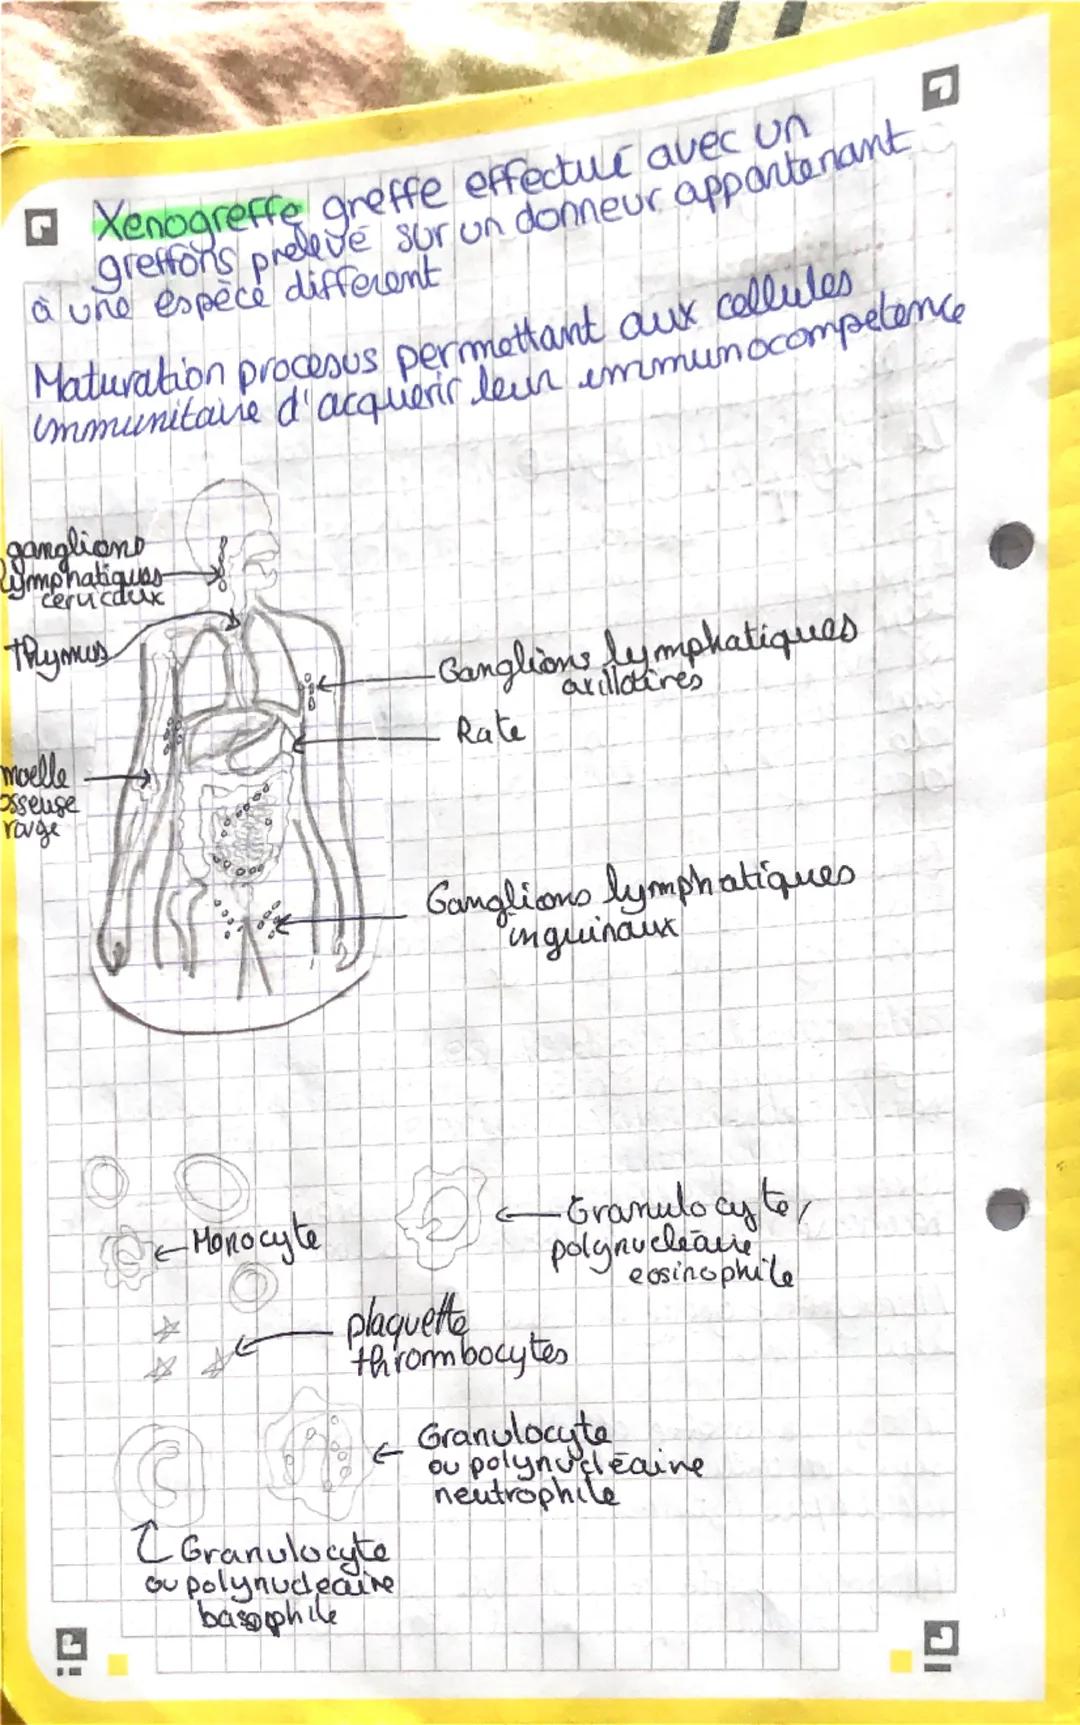 Xenogreffe greffe effectué avec un
greffons prelevé sur un donneur appartenant
à une espèce different
Maturation procesus permettant aux cellules
immunitaire d'acquérir leur immunocompetence
ganglions
lymphatiques
cervicaux
Thymus
Ganglions lymphatiques
axillaires
Rate
moelle
osseuse
rouge
Ganglions lymphatiques
inguinaux
Monocyte
Granulocyte/
polynucléaire
eosinophile
plaquette
thrombocytes
Granulocyte
ou polynucléaire
neutrophile
Granulocyte
ou polynucleaire
basophile